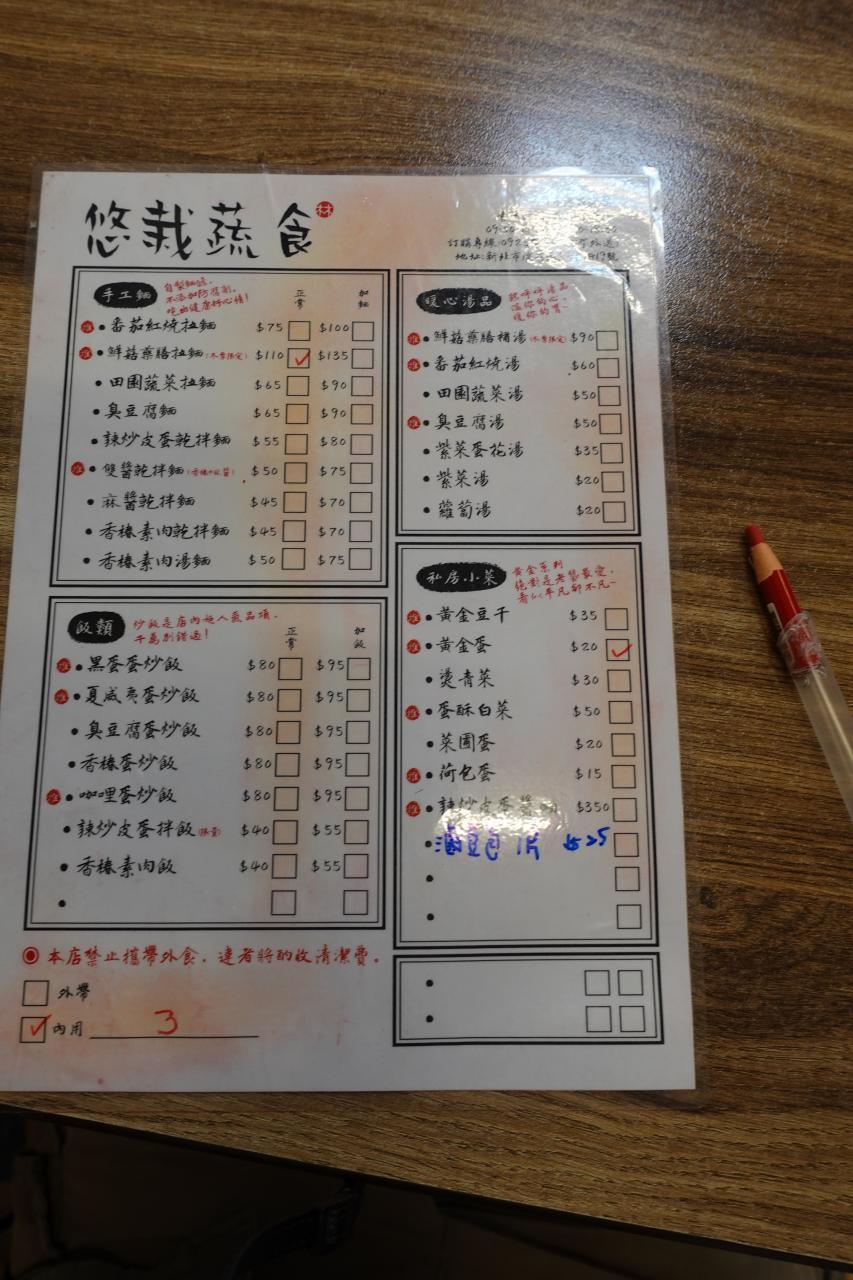 悠栽蔬食 林
訂購專線:092
地址:新北市
手工麵
自製麵條,
不添加防腐劑,
吃出健康好心情!
正常 加麵
推 • 番茄紅燒拉麵 $75 $100
推 • 鮮菇藥膳拉麵(冬季限定) $110 ✓ $135
• 田園蔬菜拉麵 $65 $90
• 臭豆腐麵 $65 $90
• 辣炒皮蛋乾拌麵 $55 $80
推 • 雙醬乾拌麵 $50 $75
• 麻醬乾拌麵 $45 $70
• 香椿素肉乾拌麵 $45 $70
• 香椿素肉湯麵 $50 $75
暖心湯品
熱呼呼湯品
溫你的心~
暖你的胃~
推 • 鮮菇藥膳補湯(冬季限定) $90
推 • 番茄紅燒湯 $60
• 田園蔬菜湯 $50
推 • 臭豆腐湯 $50
• 紫菜蛋花湯 $35
• 紫菜湯 $20
• 蘿蔔湯 $20
飯類
炒飯是店內超人氣品項,
千萬別錯過!
正常 加飯
推 • 黑蛋蛋炒飯 $80 $95
推 • 夏威夷蛋炒飯 $80 $95
• 臭豆腐蛋炒飯 $80 $95
• 香椿蛋炒飯 $80 $95
推 • 咖哩蛋炒飯 $80 $95
• 辣炒皮蛋拌飯(限量) $40 $55
• 香椿素肉飯 $40 $55
•
私房小菜
黃金系列
絕對是老饕最愛,
看似平凡卻不凡~
推 • 黃金豆干 $35
推 • 黃金蛋 $20 ✓
• 燙青菜 $30
推 • 蛋酥白菜 $50
• 菜圃蛋 $20
推 • 荷包蛋 $15
推 • 辣炒皮蛋醬 $350
• 滷豆包 1片 $25
•
•
•
•
◉ 本店禁止攜帶外食,違者將酌收清潔費。
外帶
✓ 內用 3